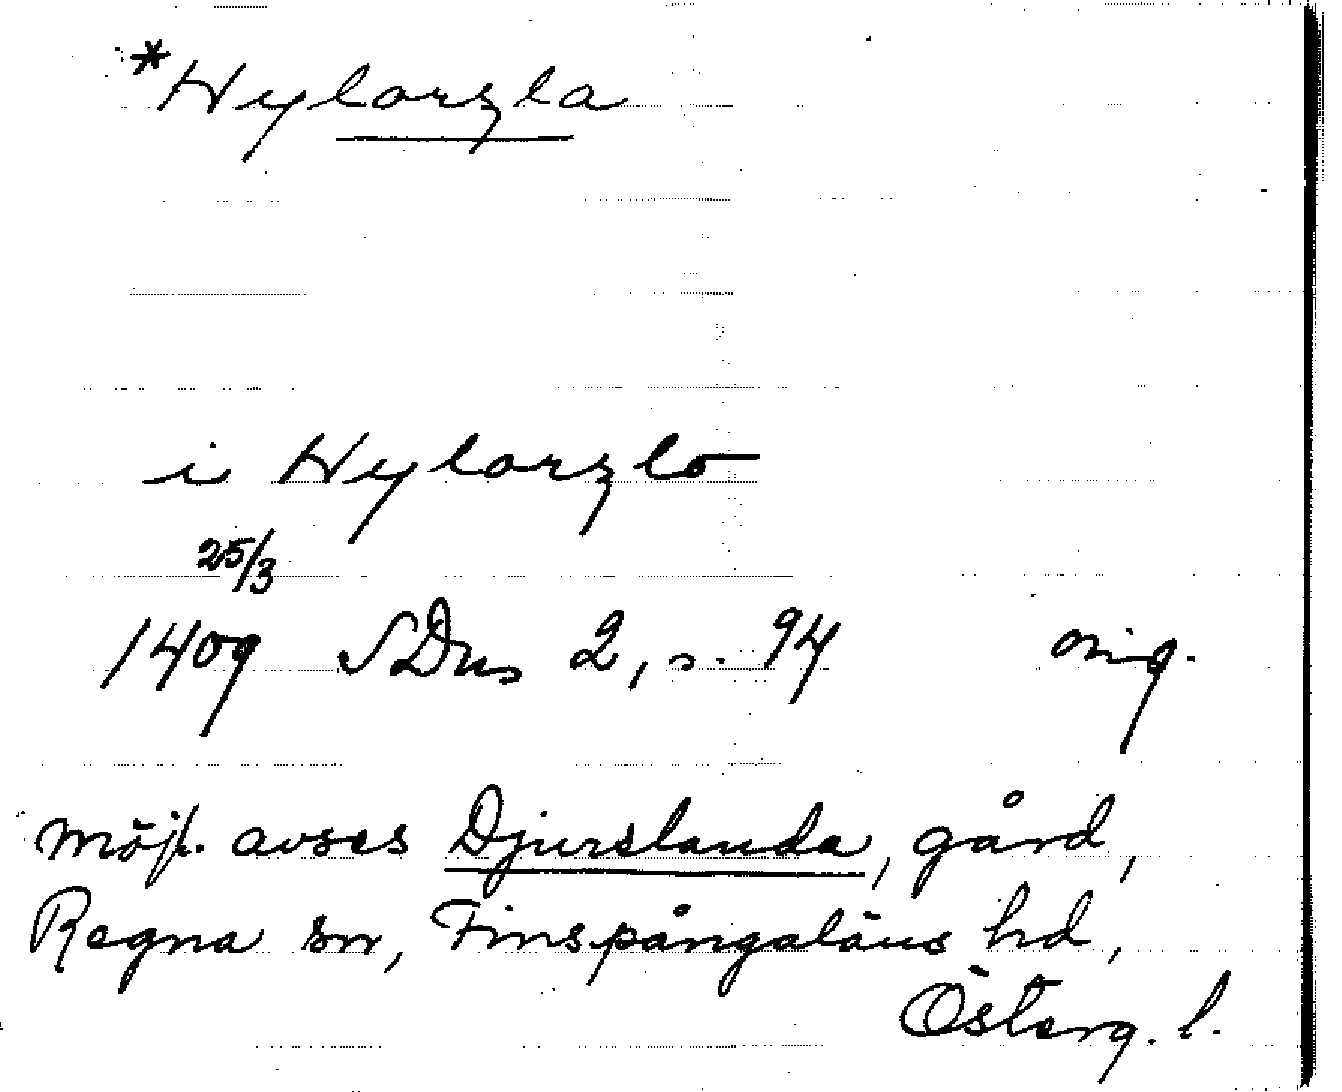 *Hylorzla
i Hylorzlo
25/3
1409 SDns 2, s. 94 orig.
möjl. avses Djurslanda, gård,
Regna sn, Finspångaläns hd,
Österg. l.